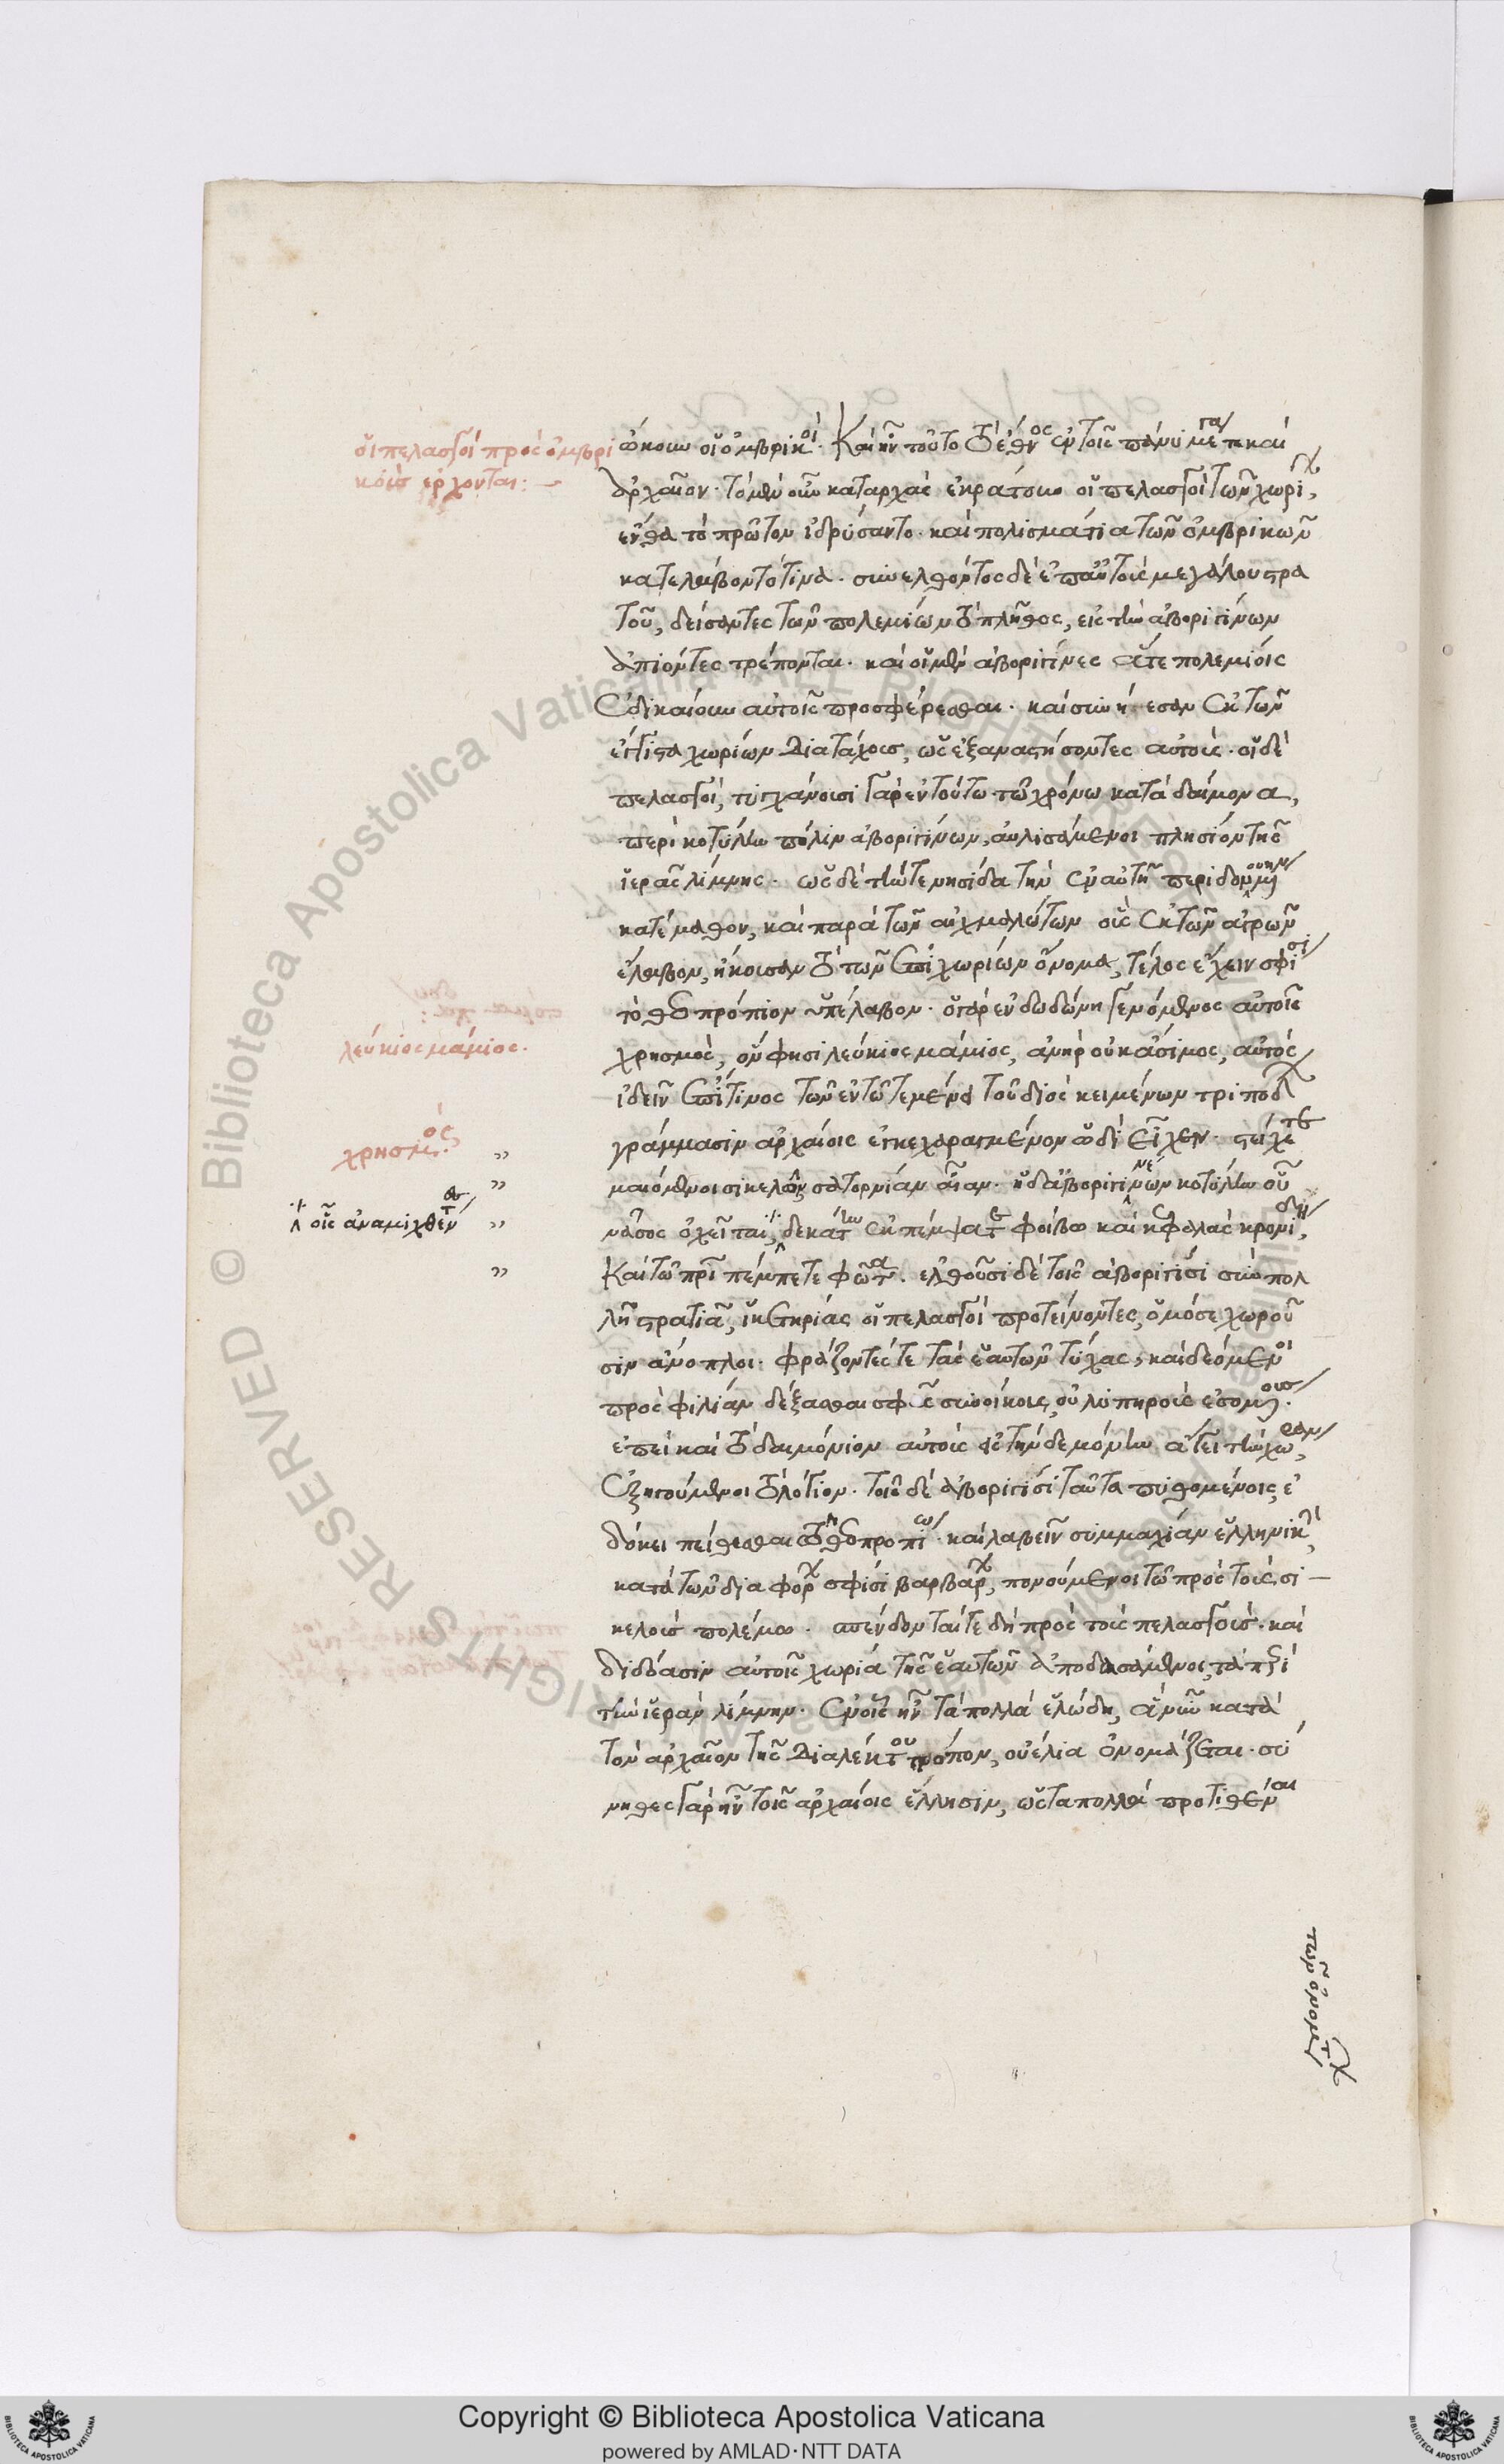 οἱ πελασγοὶ πρὸς ὀμβρι
κοὺς ἔρχονται:—
ᾤκουν οἱ ὀμβρικοί. Καὶ ἦν τοῦτο τὸ ἔθνος ἐν τοῖς πάνυ μέγα τε καὶ
ἀρχαῖον. τὸ μὲν οὖν καταρχὰς ἐκράτουν οἱ πελασγοὶ τῶν χωρίων,
ἔνθα τὸ πρῶτον ἱδρύσαντο. καὶ πολισμάτια τῶν ὀμβρικῶν
κατελάμβοντό τινα. συνελθόντος δὲ ἐπ αὐτοὺς μεγάλου στρα
τοῦ, δείσαντες τῶν πολεμίων τὸ πλῆθος, εἰς τὴν ἀβοριγίνων
ἀπιόντες τρέπονται. καὶ οἱ μὲν ἀβοριγίνες ἅτε πολεμίοις
ἐδικαίουν αὐτοῖς προσφέρεσθαι. καὶ συνήεσαν ἐκ τῶν
ἔγγιστα χωρίων διὰ τάχους, ὡς ἐξαναστήσοντες αὐτούς. οἱ δὲ
πελασγοί, τυγχάνουσι γὰρ ἐν τούτω τῶ χρόνω κατὰ δαίμονα,
περὶ κοτύλην πόλιν ἀβοριγίνων, αὐλισάμενοι πλησίον τῆς
ἱερᾶς λίμνης. ὡς δὲ τήν τε νησίδα τὴν ἐν αὐτῆ περιδινουμένην
κατέμαθον, καὶ παρὰ τῶν αἰχμαλώτων οὓς ἐκ τῶν ἀγρῶν
ἔλαβον, ἤκουσαν τὸ τῶν ἐπιχωρίων ὄνομα, τέλος ἔχειν σφίσι
τὸ θεοπρόπιον ὑπέλαβον. ὁ γὰρ ἐν δωδώνη γενόμενος αὐτοῖς
λεύκιος μάμιος.
χρησμὸς, ὅν φησι λεύκιος μάμιος, ἀνὴρ οὐκ ἄσιμος, αὐτὸς
ἰδεῖν ἐπί τινος τῶν ἐν τῶ τεμένει τοῦ διὸς κειμένων τριπόδων
χρησμός
γράμμασιν ἀρχαίοις ἐγκεχαραγμένον ὧδὶ εἶχεν. στείχετε
μαιόμενοι σικελῶν σατορνίαν αἶαν. ἠδ ἀβοριγινέων κοτύλην οὗ
οἷς ἀναμιχθέντες
νᾶσος ὀχεῖται, δεκάτην ἐκπέμψατε φοίβω καὶ κεφαλὰς κρονίδη,
Καὶ τῶ πρὶ πέμπετε φῶτα. ἐλθοῦσι δὲ τοῖς ἀβοριγίσι σὺν πολ
λῆ στρατιᾶ, ἱκετηρίας οἱ πελασγοὶ προτείνοντες, ὁμόσε χωροῦ
σιν ἄνοπλοι. φράζοντές τε τὰς ἑαυτῶν τύχας, καὶ δεόμενοι
πρὸς φιλίαν δέξασθαι σφᾶς συνοίκους, οὐ λυπηροὺς ἐσομένους.
ἐπεὶ καὶ τὸ δαιμόνιον αὐτοὺς εἰς τήνδε μόνην ἄγει τὴν χώραν,
ἐξηγούμενοι τὸ λόγιον. τοῖς δὲ ἀβοριγίσι ταῦτα πυθομένοις, ἐ
δόκει πείθεσθαι τῶ θεοπροπίω. καὶ λαβεῖν συμμαχίαν ἑλληνικὴν,
κατὰ τῶν διαφόρων σφίσι βαρβάρων, πονούμενοι τῶ πρὸς τοὺς σι—
κελοὺς πολέμω. σπένδονταί τε δὴ πρὸς τοὺς πελασγούς. καὶ
διδόασιν αὐτοῖς χωρία τῆς ἑαυτῶν ἀποδασάμενοι, τὰ περὶ
τὴν ἱερὰν λίμνην. ἐν οἷς ἦν τὰ πολλὰ ἑλώδη, ἃ νῦν κατὰ
τὸν ἀρχαῖον τῆς διαλέκτου τρόπον, οὐέλια ὀνομάζεται. σύ
νηθες γὰρ ἦν τοῖς ἀρχαίοις ἕλλησιν, ὡς τὰ πολλὰ προτιθέναι
τῶν ὀνομάτων
Copyright © Biblioteca Apostolica Vaticana
powered by AMLAD·NTT DATA